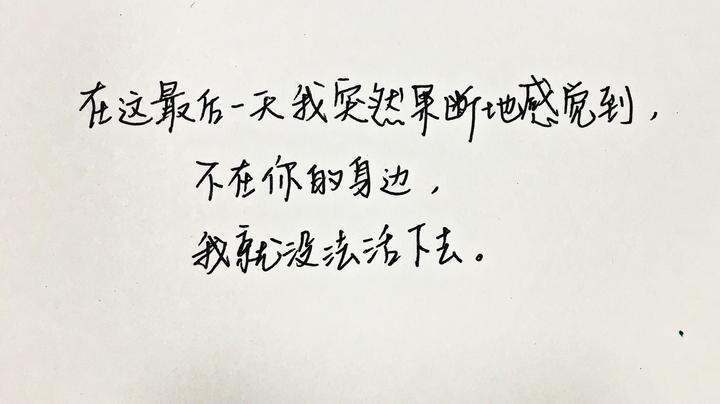 在这最后一天我突然果断地感觉到，
不在你的身边，
我就没法活下去。